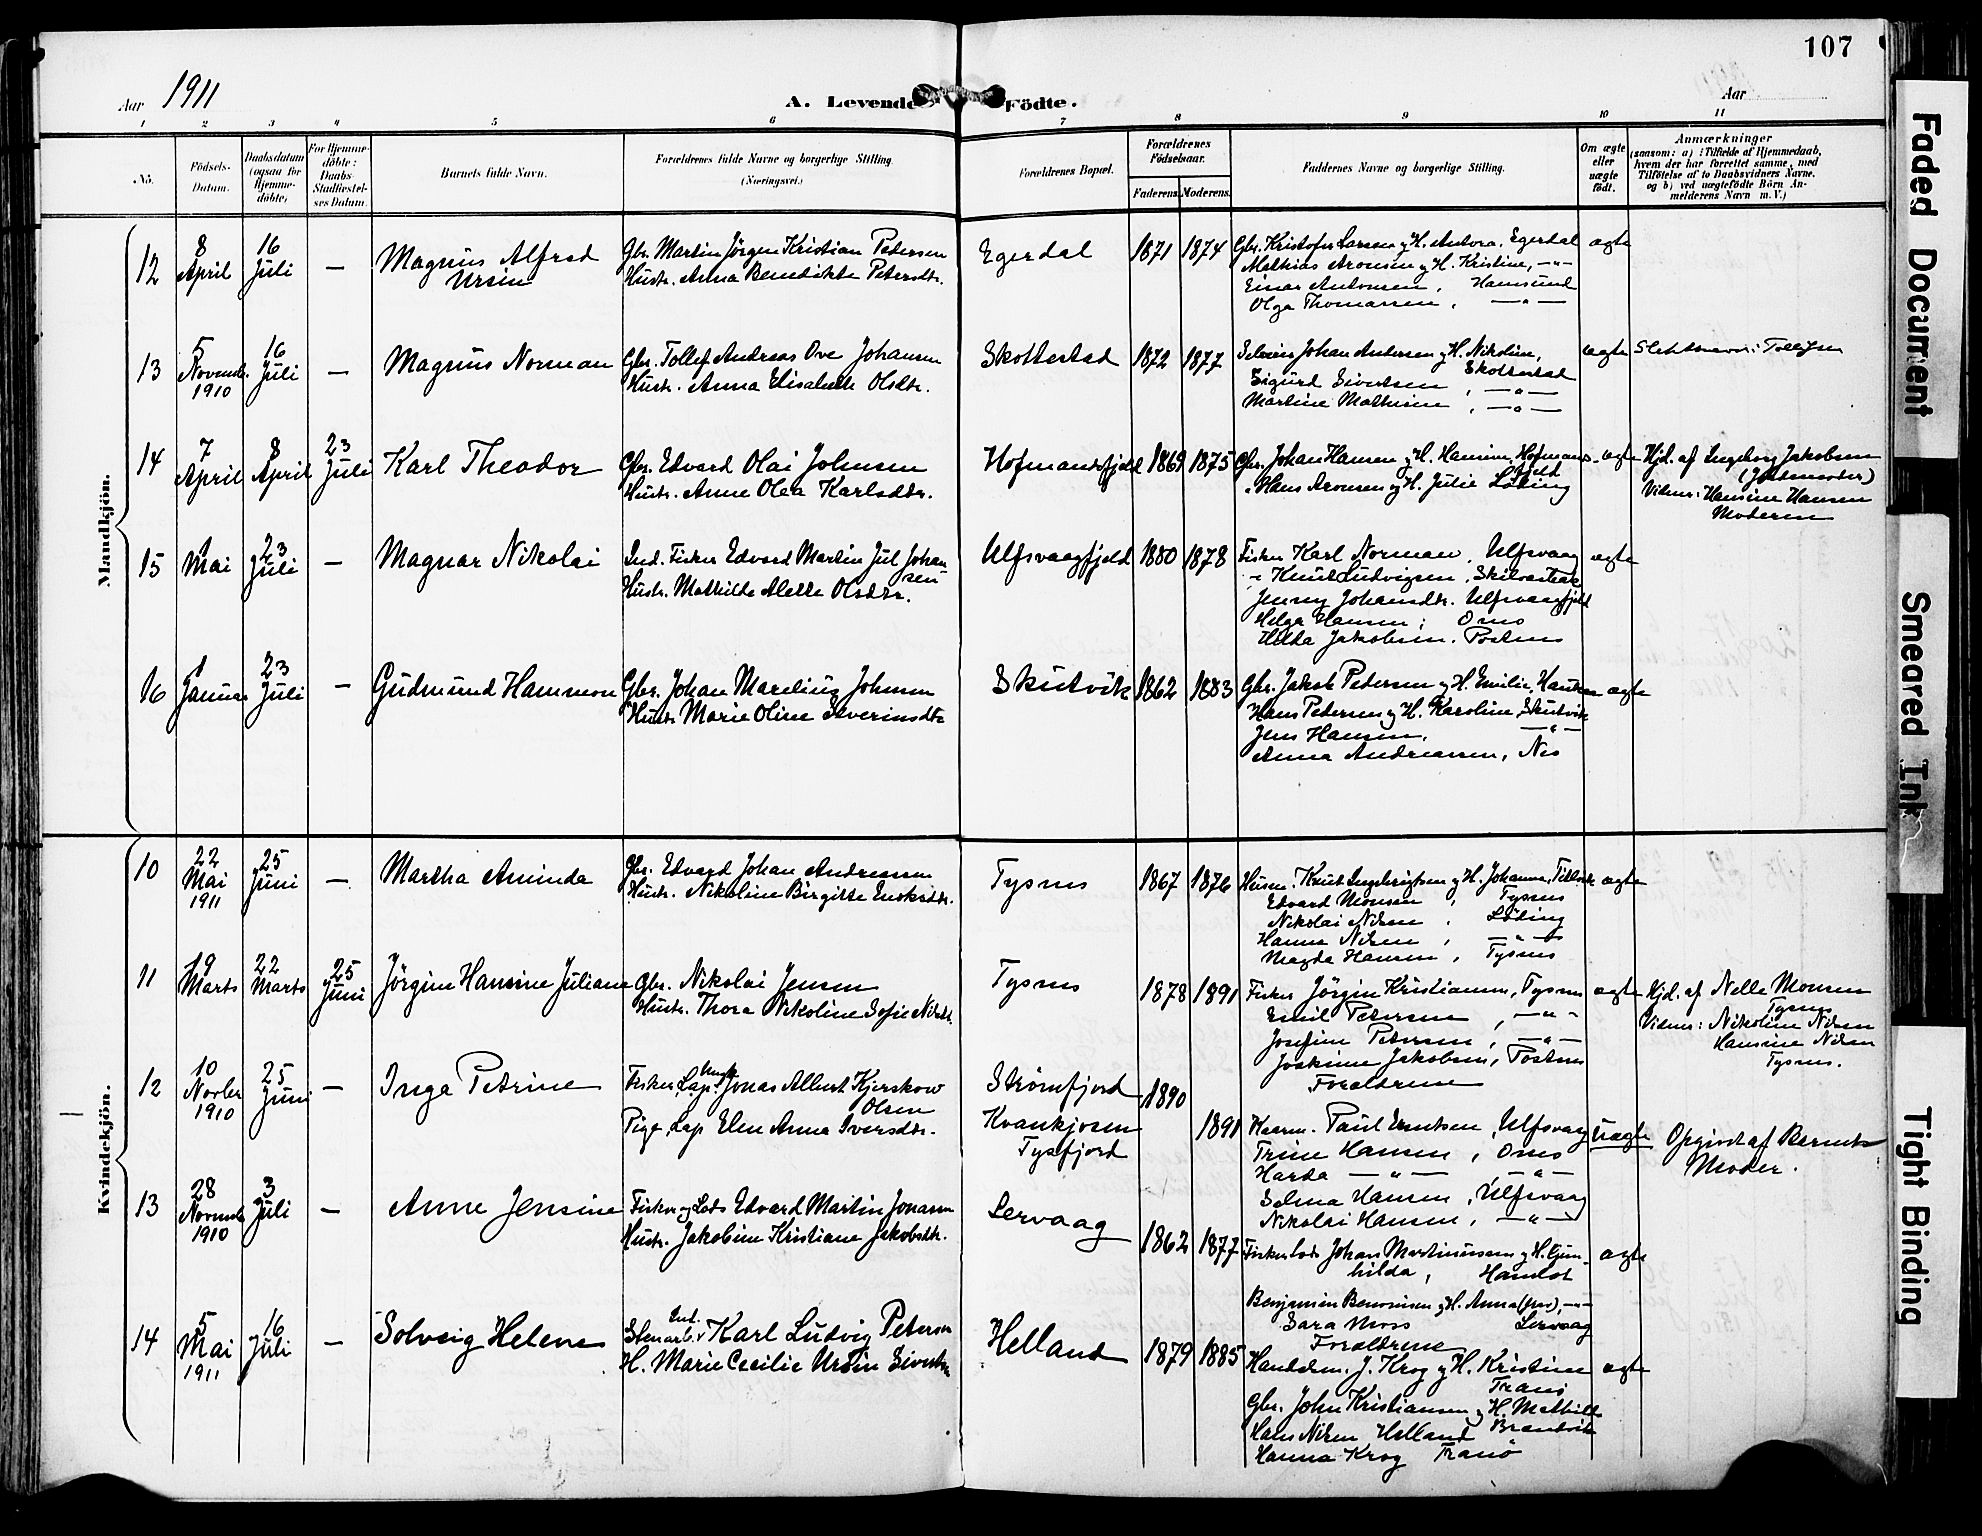 107
Aar 1911
A. Levende Födte.
Aar
1 2 3 4 5 6 7 8 9 10 11
No.
Födsels-
Datum.
Daabsdatum
(ogsaa for
Hjemme-
döbte)
For Hjemme-
döbte:
Daabs-
Stadfæstel-
ses Datum.
Barnets fulde Navn.
Forældrenes fulde Navne og borgerlige Stilling.
(Næringsvei.)
Forældrenes Bopæl.
Forældrenes
Födselsaar.
Faderens. Moderens.
Faddernes Navne og borgerlige Stilling.
Om ægte
eller
uægte
födt.
Anmærkninger
(saasom: a) i Tilfælde af Hjemmedaab,
hvem der har forrettet samme, med
Tilföielse af to Daabsvidners Navne,
og b) ved uægtefödte Börn An-
melderens Navn m. V.)
Mandkjön.
12
8
April
16
Juli
—
Magnus Alfred
Ursin
Gbr. Martin Jörgen Kristian Pedersen
Hustr. Anna Benedikte Petersdtr.
Egerdal
1871 1874
Gbr. Kristofer Larsen og H. Antora, Egerdal
Mathias Aronsen og H. Kristine, —"—
Einar Antonsen, Hamsund
Olga Thomassen, —"—
ægte
13
5
Novembr.
1910
16
Juli
—
Magnus Norman
Gbr. Tollef Andreas Ove Johansen
Hustr. Anna Elisabeth Olsdtr.
Skottestad
1872 1877
Johan Andersen og H. Nikoline,
Skottestad
Sigurd Sivertsen, —"—
Martine Mathisen, —"—
ægte
Slektsnavn: Tollefsen
14
7
April
8
April
23
Juli
Karl Theodor
Gbr. Edvard Olai Johnsen
Hustr. Anne Olea Karlsdtr.
Hofmandsfjeld
1869 1875
Gbr. Johan Hansen og H. Hansine, Hofmans-
fjeld
" Hans Aronsen og H. Julie Löding
ægte
Hjd. af Ingeborg Jakobsen
(Jordemoder)
Vidner: Hansine Hansen
Moderen
15
1
Mai
23
Juli
—
Magnar Nikolai
Ind. Fisker Edvard Martin Jul Johan
sen
Hustr. Mathilde Alette Olsdtr.
Ulfsvaagfjeld
1880 1878
Fisker Karl Norman, Ulfsvaag
" Knut Ludvigsen, Skilvastrak
Jenny Johansdtr. Ulfsvaagfjeld
Helga Hansen, Ones
Hilda Jakobsen. Postnes
ægte
16
1
Januar
23
Juli
—
Gudmund Hammon
Gbr. Johan Marelius Johnsen
Hustr. Marie Oline Severinsdtr
Skutvik
1862 1883
Gbr. Jakob Petersen og H. Emilie,
Hans Petersen og H. Karoline, Skutvik
Jens Hansen, —"—
Anna Andreassen, Nes
ægte
Kvindekjön.
10
22
Mai
1911
25
Juni
—
Martha Aminda
Gbr. Edvard Johan Andreassen
Hustr. Nikoline Birgitte Enoksdtr.
Tysnes
1867 1876
Husm. Knut Ingebrigtsen og H. Johanna,
Edvard Monsen, Tysnes
Nikolai Nilsen, Löding
Hanna Nilsen, —"—
Magda Hansen, Tysnes
ægte
11
19
Marts
22
Marts
25
Juni
Jörgine Hansine Juliane
Gbr. Nikolai Jensen
Hustr. Thora Nikoline Sofie Nilsdtr.
Tysnes
1878 1891
Fisker Jörgen Kristiansen, Tysnes
Emil Petersen, —"—
Josefine Petersen, —"—
Joakime Jakobsen, Postnes
Forældrene
ægte
Hjd. af Nelle Monsen
Tysnes
Vidner: Nikoline Nilsen
Hansine Nilsen
Tysnes.
12
10
Novbr
1910
25
Juni
—
Inga Petrine
Fisker, Lap, Jonas Albert Kjerskow
Olsen
Pige, Lap Elen Anna Iversdtr.
Strömfjord
Kvankjosen
Tysfjord
1890
1891
Kaarm. Paul Berntsen, Ulfsvaag
Trine Hansen, Ones
Harda —"— —"—
Selma Hansen, Ulfsvaag
Nikolai Hansen, —"—
Uægte
Opgivet af Barnets
Moder.
13
28
Novembr
1910
3
Juli
—
Anne Jensine
Fisker og Lods Edvard Martin Jonassen
Hustr. Jakobine Kristiane Jakobsdtr.
Lervaag
1862 1877
Fisker Lods Johan Martinussen og H. Gun-
hilda, Hamlot
Benjamin Beronisen og H. Anna —"—
Sara Moss Lervaag
Forældrene
ægte
14
5
Mai
1911
16
Juli
—
Solveig Helene
Ind.
Stenarb. Karl Ludvig Petersen
H. Marie Cecilie Ursin Sivertsen
Helland
1879 1885
Handelsm. J. Krog og H. Kristine
Tranö
Gbr. John Kristiansen og H. Mathilde
Brandvik
Hans Nilsen Helland
Hanna Krog Tranö
ægte
Faded Document
Smeared Ink
Tight Binding